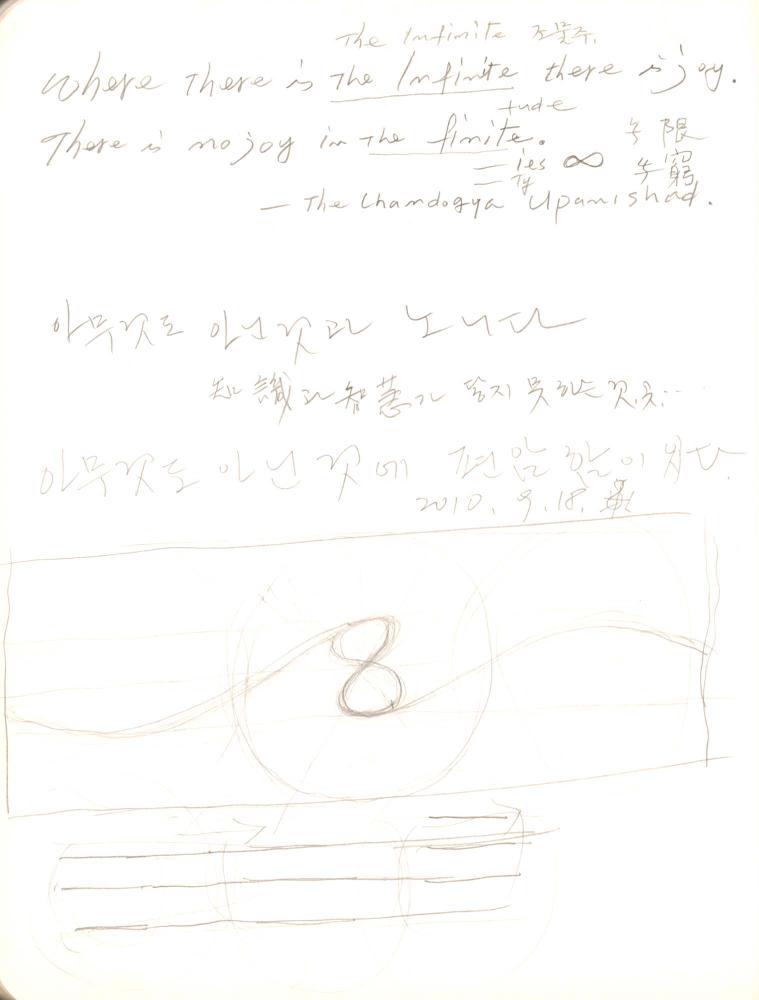 The Infinite 조물주.
Where There is The Infinite there is joy.
tude
There is no joy in The finite. 무限
= ies ∞ 무窮
Ty
— The Chandogya Upanishad.
아무것도 아닌것과 노니다
知識과 智慧가 닿지 못하는 것,곳....
아무것도 아닌 것에 편암함이 있다.
2010. 9. 18.
8